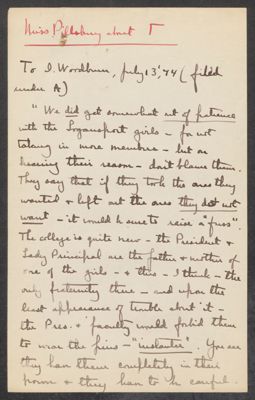 Miss Pillsbury about Γ
To I. Woodburn, July 13 '74 (filed
under A)
"We did get somewhat out of patience
with the Logansport girls - for not
taking in more members - but on
hearing their reason - don't blame them.
They say that if they took the ones they
wanted & left out the ones they do not
want - it would be sure to raise a "fuss".
The college is quite new - the President &
Lady Principal are the father & mother of
one of the girls - & this - I think - the
only fraternity there - and upon the
least appearance of trouble about it -
the Pres. & faculty would forbid them
to wear the pins - "instanter". You see
they have them completely in their
power & they have to be careful.